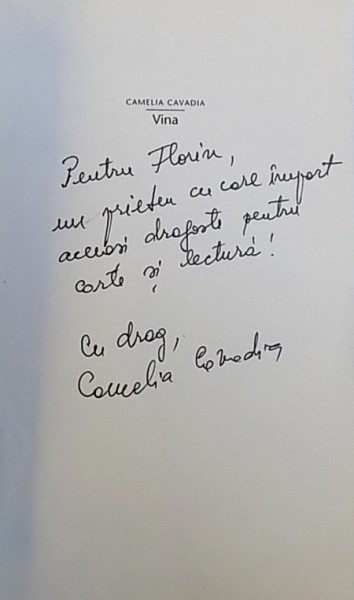 CAMELIA CAVADIA
Vina
Pentru Florin,
un prieten cu care împart
aceeași dragoste pentru
carte și lectură!
Cu drag,
Camelia Cavadia